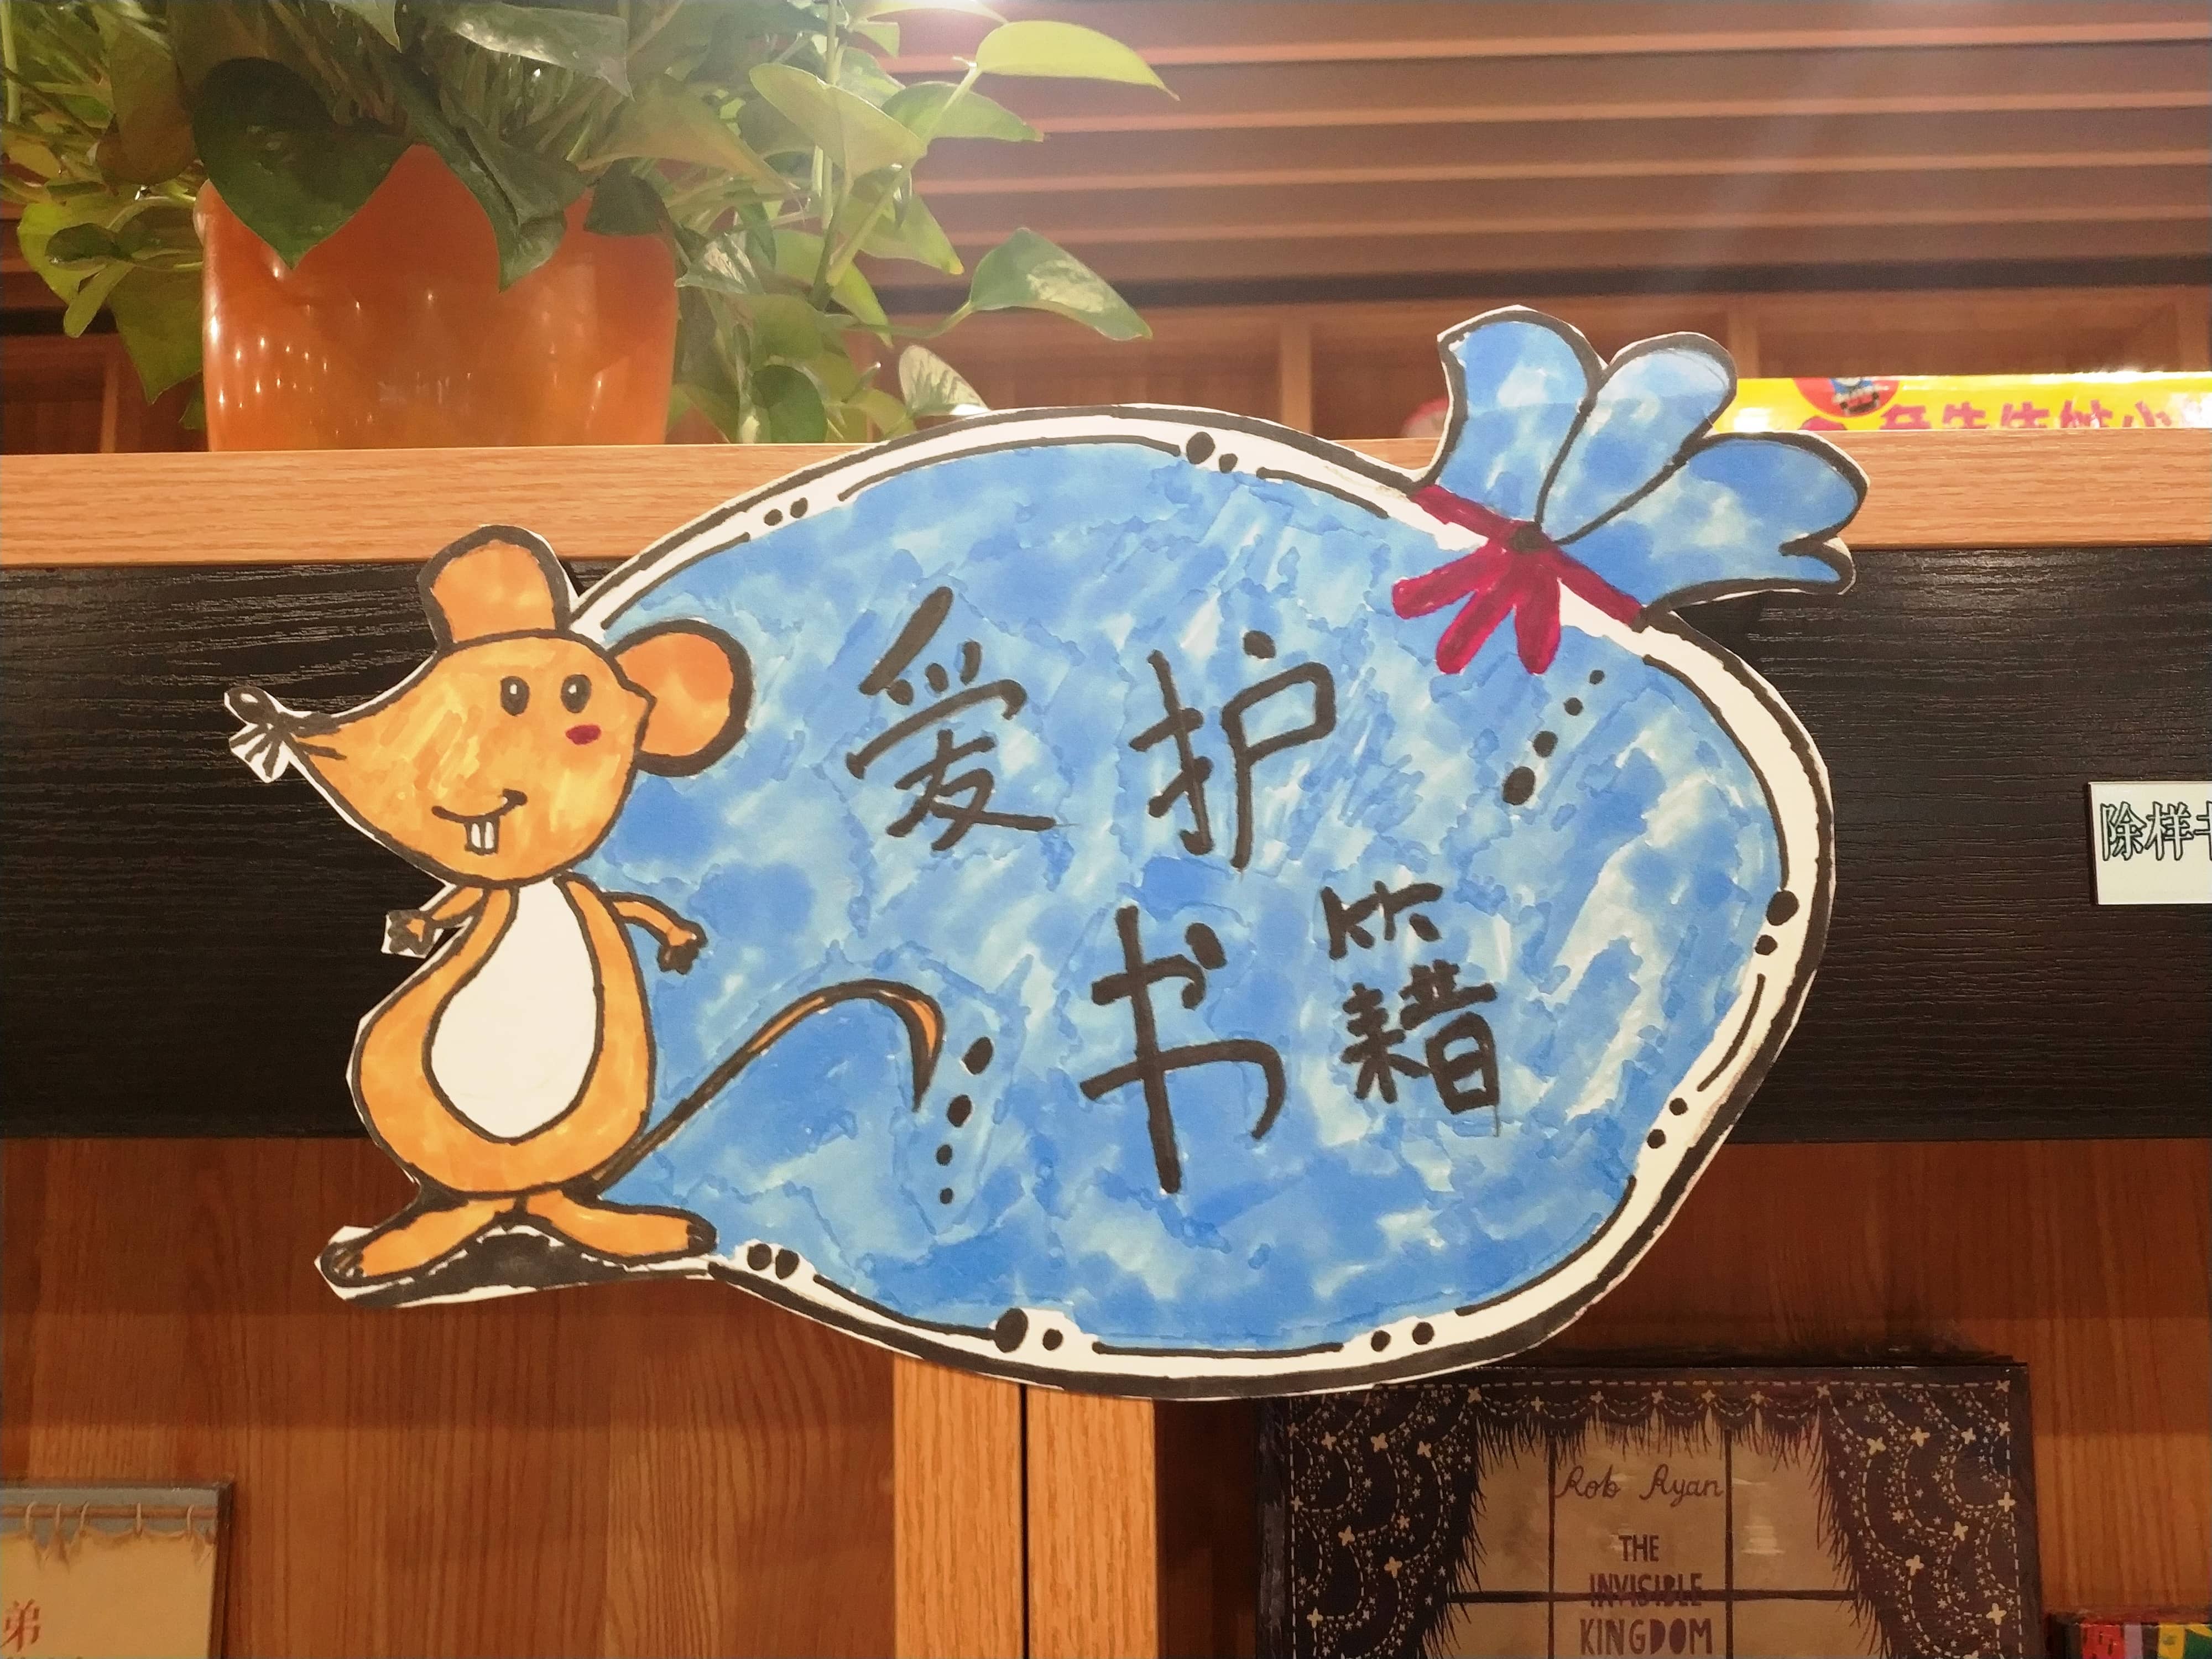 爱护
书籍
除样
Rob Ryan
THE
INVISIBLE
KINGDOM
弟